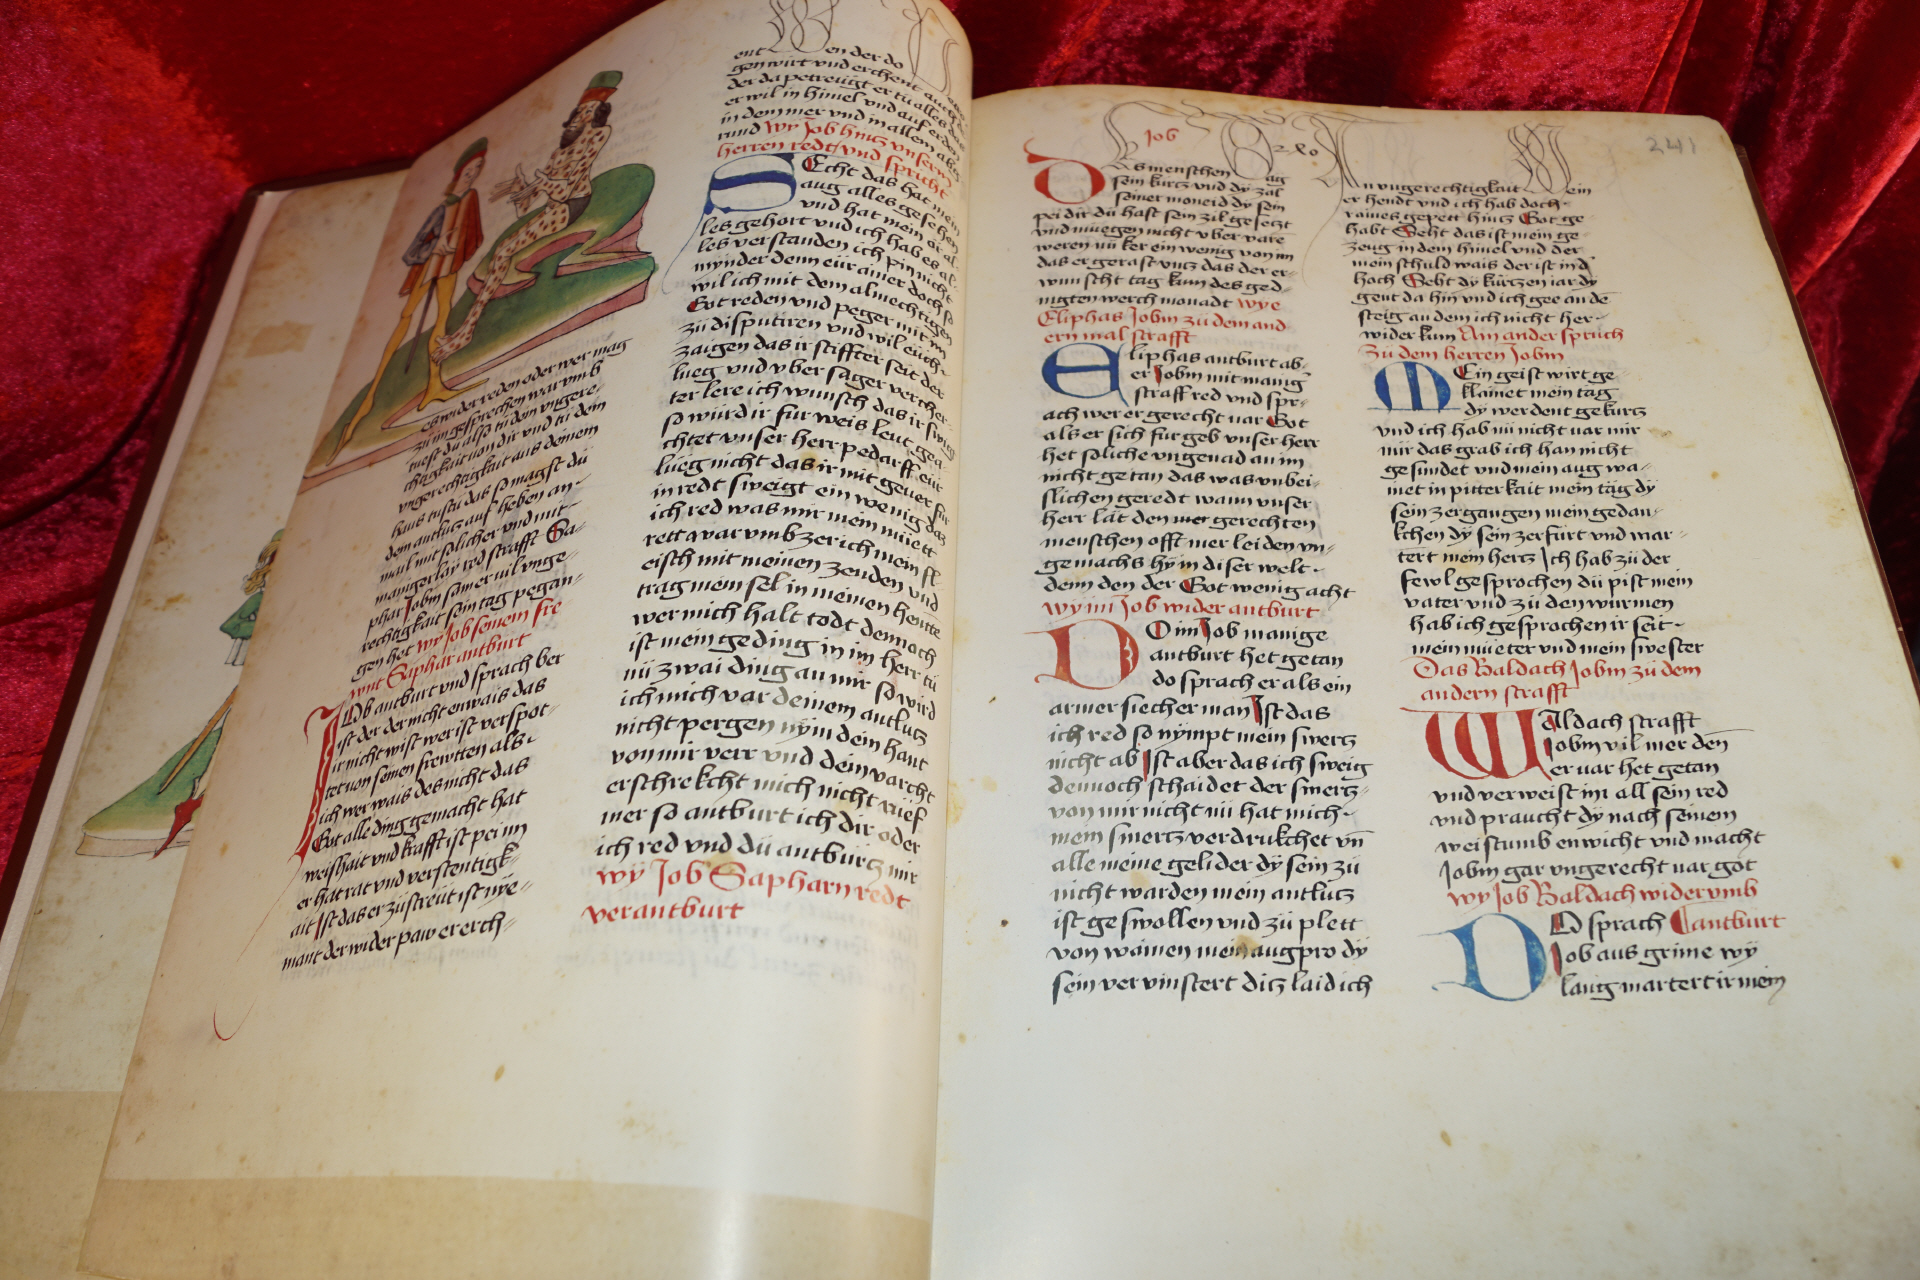 es wider reden oder wer mag
zu im gesprechen warumb
tuest du also tu dein ungere-
chtigkait von dir und tu dem
ungerechtigkait aus deinem
haus tustu das so magst du
dem antlutz auf heben an-
mail mit solicher und mit-
maniger lay red strafft Sa-
phar Jobm sam er vil unge-
rechtigkait sein tag pegan-
gen het wy Job seinem fre
wnt Saphar antburt
JOb antburt und sprach ber
ist der der nicht enwais das
ir nicht wist wer ist verspot-
tet von seinen frewtten als-
ich wer wais des nicht das
Got alle ding gemacht hat
weishait und krafft ist pei im
er hat rat und verstentigk-
ait Ist das er zustreut ist nye-
mant der wider paw er erch-
ent Wen der do
gen wirt und erchent auch den
der da petreugt er tu alles das
er wil in himel und auf erden
in dem mer und in allem ab
rund wy Job hintz unserm
herren redt und spricht
SEcht das hat mein
aug alles gesehen
und hat mein or al-
les gehort und ich hab es al-
les verstanden ich pin nicht
mynder denn eur ainer doch so
wil ich mit dem almechtigen
Got reden und peger mit im
zu disputiren und wil euch-
zaigen das ir stiffter seit der
lueg und uber sager vercher-
ter lere ich wunsch das ir swigt
so wurd ir fur weis leut gea-
chtet unser herr pedarff eur
lueg nicht das ir mit gever fur
in redt sweigt ein wenig daz
ich red was mir mein muett
rett warumb zerich mein fl-
eisch mit meinen zenden und
trag mein sel in meinen hentte
wer mich halt todt dennoch
ist mein geding in im herr tu
nu zwai ding an mir so wird
ich mich var deinem antlutz
nicht pergen nym dein hant
von mir verr und dein varcht
erschrekcht mich nicht ruef
mer so antburt ich dir oder
ich red und du antburtz mir
wy Job Sapharn redt
verantburt
Job
241
Des menschen tag
sein kurtz und dy zal
seiner moneid dy sein
pei dir du hast sein zil gesetzt
und muegen nicht uber vare
weren nu ker ein wenig von im
das er gerast untz das der er-
wunscht tag kum des ged-
ingten werch monadt wye
Eliphas Jobm zu dem and
ern mal strafft
Eliphas antburt ab-
er Jobm mit manig
straff red und spr-
ach wer er gerecht var Got
als er sich fur geb unser herr
het soliche ungenad an im
nicht getan das was unbei-
slichen geredt wann unser
herr lat den mer gerechten
menschen offt mer leiden un-
gemachs hy in diser welt-
denn den der Got wenig acht
wy im Job wider antburt
DO im Job manige
antburt het getan
do sprach er als ein
armer siecher man Ist das
ich red so nympt mein swertz
nicht ab Ist aber das ich sweig
dennoch schaidet der smertz-
von mir nicht nu hat mich-
mein smertz verdrukchet un
alle meine gelider dy sein zu
nicht warden mein antlutz
ist geswollen und zu plett
von wainen mein augpro dy
sein vervinstert ditz laid ich
An ungerechtigkait Mein
er hendt und ich hab doch-
raines gepett hintz Got ge-
habt Seht das ist mein ge-
zeug in dem himel und der
mein schuld wais der ist in d
hoch Seht dy kurtzen iar dy
gent da hin und ich gee an de
steig an dem ich nicht her-
wider kum Ain ander spruch
zu dem herren Jobm
MEin geist wirt ge-
klainet mein tag
dy werdent gekurtz
und ich hab nu nicht var mir
nur das grab ich han nicht
gesundet und mein aug wa-
net in pitterkait mein tag dy
sein zergangen mein gedan-
kchen dy sein zerfurt und mar-
tert mein hertz Ich hab zu der
fewl gesprochen du pist mein
vater und zu den wurmen
hab ich gesprochen ir seit-
mein mueter und mein swester
Das Baldach Jobm zu dem
andern strafft
WAldach strafft
Jobm vil mer den
er var het getan
und verweist im all sein red
und praucht dy nach seinem
weistumb enwicht und macht
Jobm gar ungerecht var got
wy Job Baldach widerumb
DO sprach antburt
Job aus grime wy
lang martert ir mein